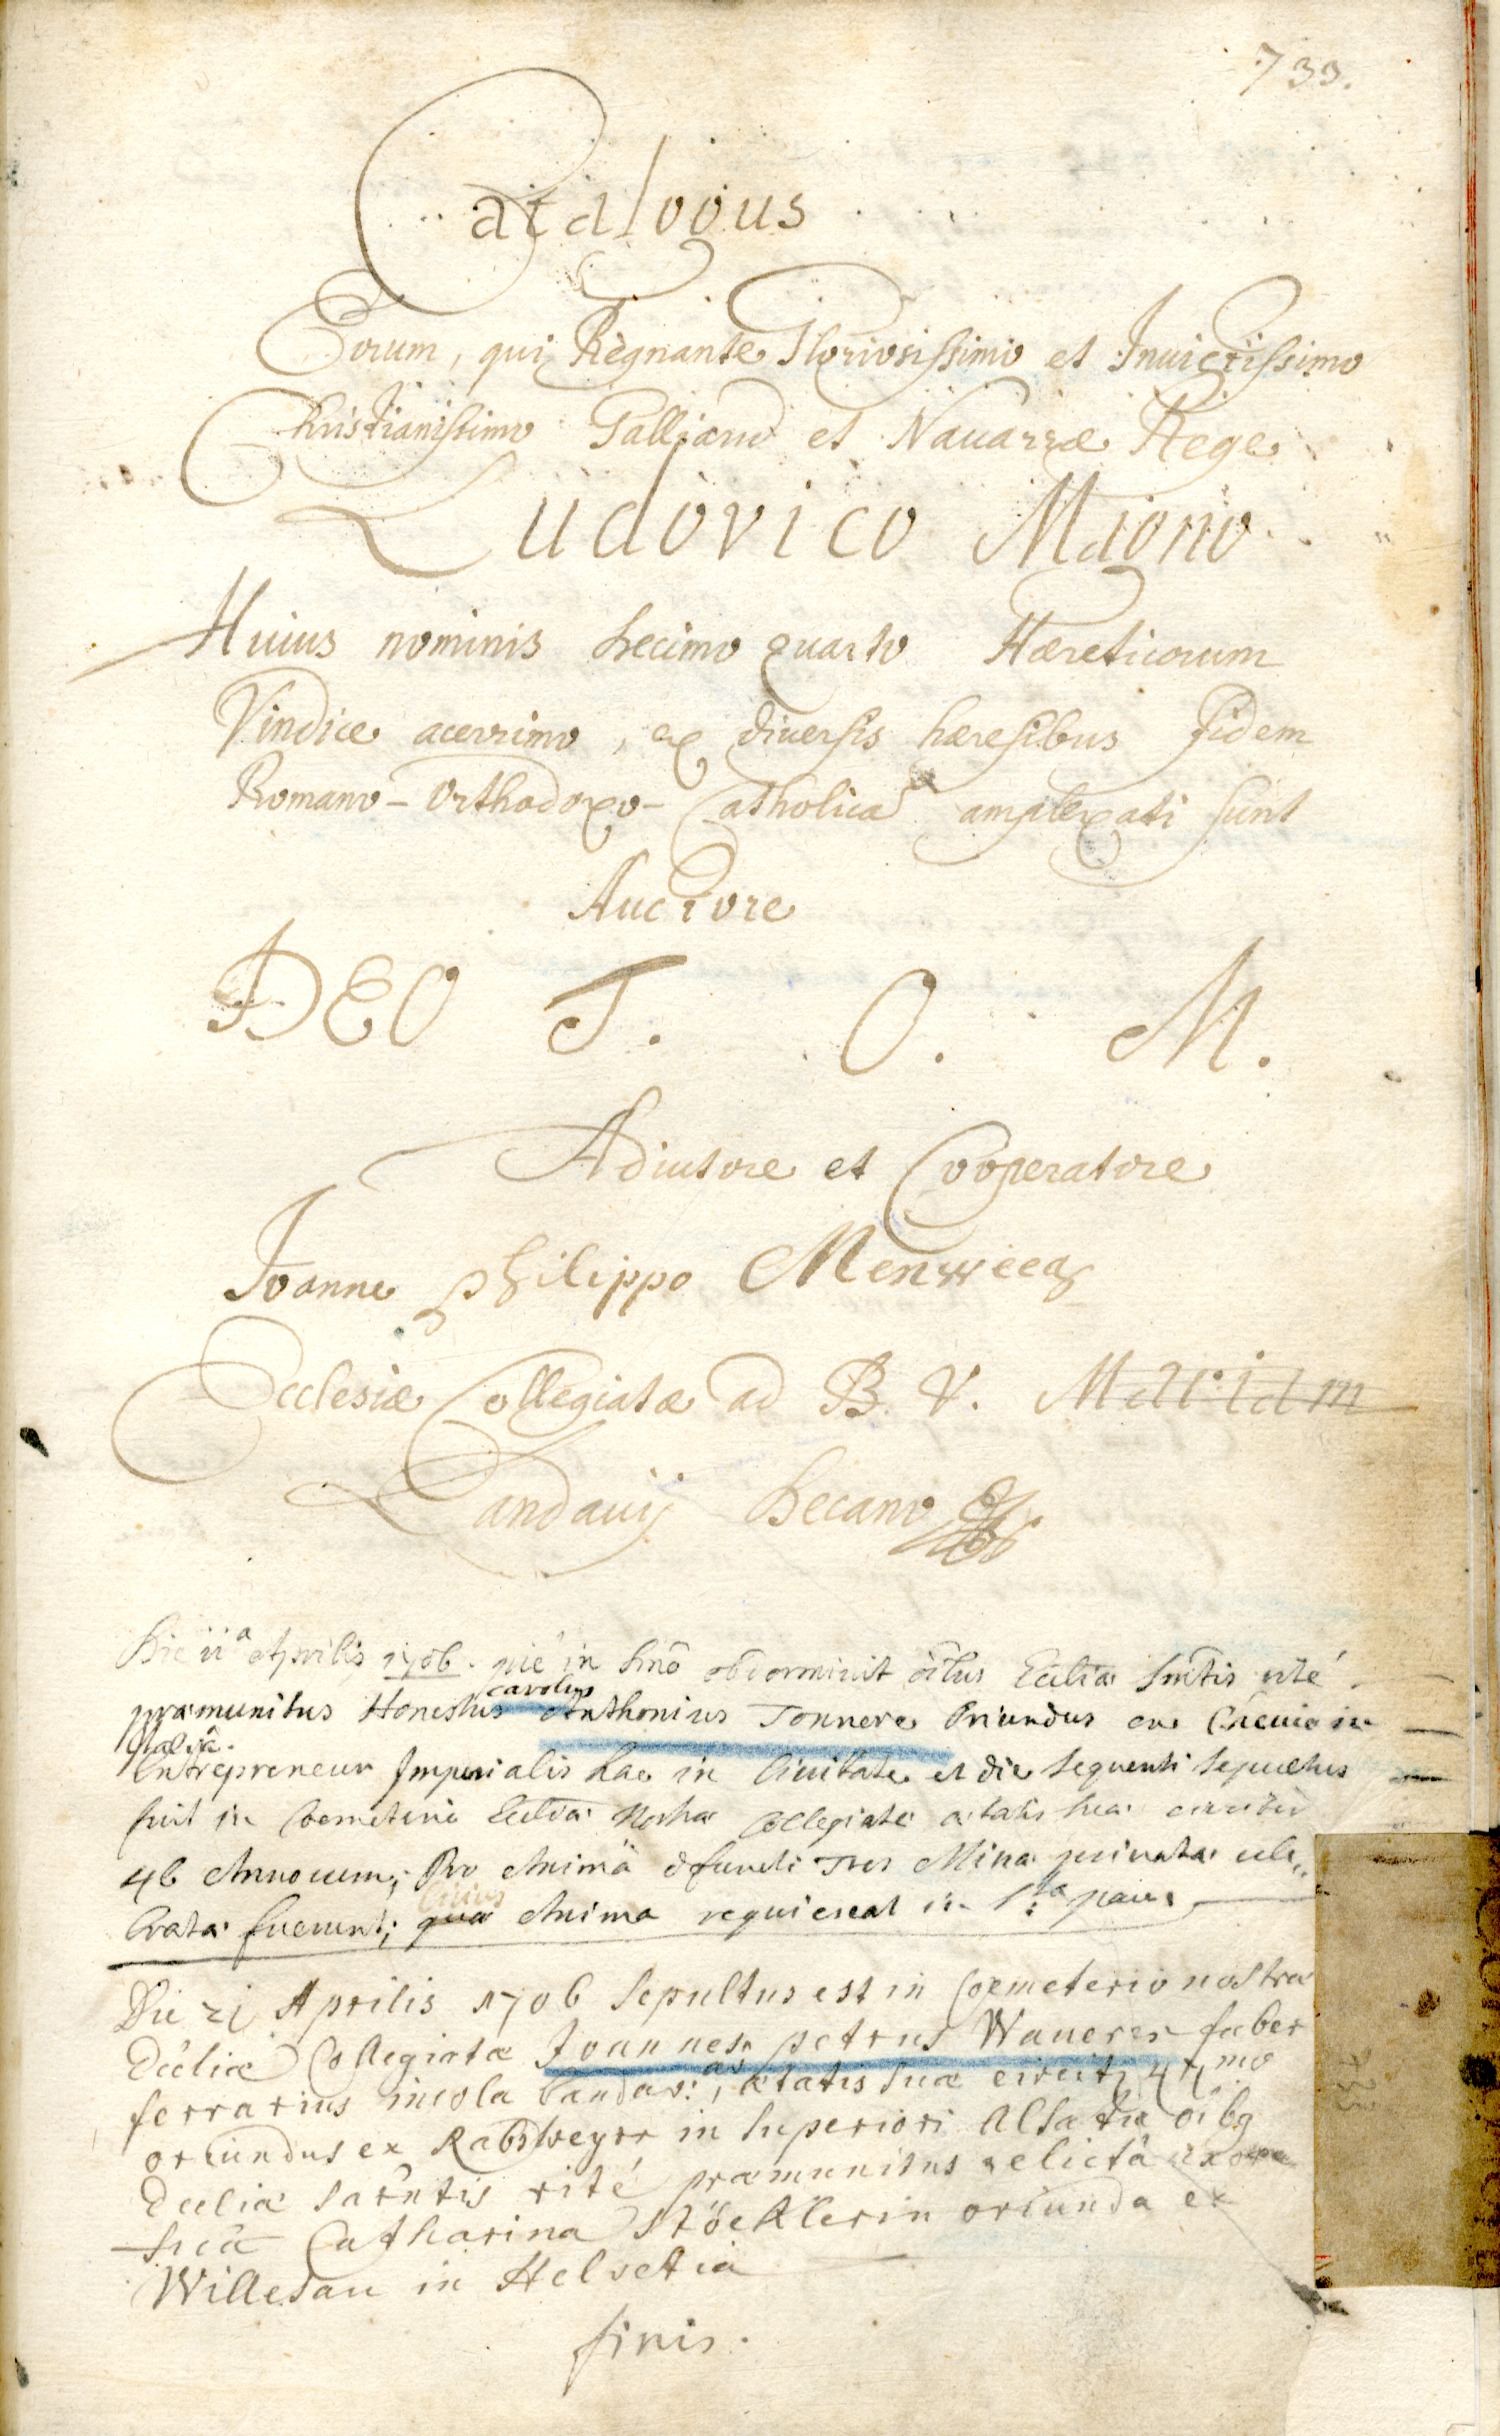 733.
Catalogus
Eorum, qui Regnante Gloriosissimo et Inuictissimo
Christianissimo Galliarum et Nauarræ Rege
Ludovico Magno
Huius nominis decimo quarto Hæreticorum
Vindice acerrimo, ex diuersis hæresibus fidem
Romano-Orthodoxo-Catholicam amplexati sunt
Auctore
DEO T. O. M.
Adiutore et Cooperatore
Joanne Philippo Menweeg
Ecclesiæ Collegiatæ ad B. V. Mariam
Landavij Decano
Die 11a Aprilis 1706. pié in Dno obdormiuit oibus Eccliæ Sacrntis rité
præmunitus Honestus carolus Anthonius Tonnere Oriundus ex in
Italia.
Entrepreneur Imperialis hac in Ciuitate et die sequenti sepultus
fuit in Coemeterio Eccliæ nostræ Collegiatæ ætatis suæ circiter
46 Annorum; Pro Anima defuncti Tres Missæ priuatæ cele„
bratæ fuerunt; cuius Anima requiescat in Sta pace
Die 21 Aprilis 1706 Sepultus est in Coemeterio nostræ
Eccliæ Collegiatæ Joannes petrus Waneren faber
ferrarius incola Landav:, ætatis suæ circit; 47mo
oriundus ex Rabsweyer in superiori Alsatiæ oibg
Eccliæ Sacrntis rité præmunitus relictâ uxore
suâ Catharina Stöcklerin oriunda ex
Willesau in Helvetia
finis.